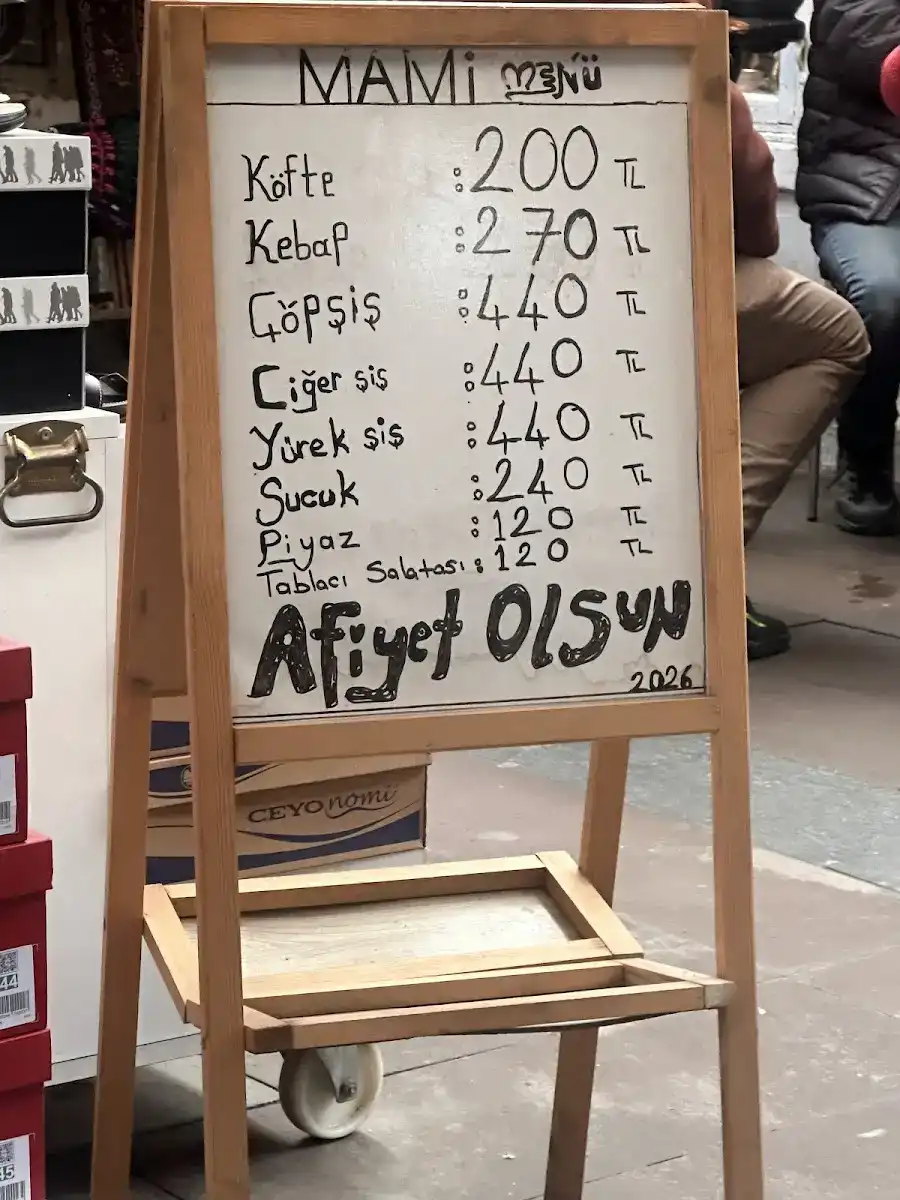 MAMİ MENÜ
Köfte : 200 TL
Kebap : 270 TL
Çöpşiş : 440 TL
Ciğer şiş : 440 TL
Yürek şiş : 440 TL
Sucuk : 240 TL
Piyaz : 120 TL
Tablacı Salatası : 120 TL
Afiyet OLSUN
2026
CEYOnomi
44
45